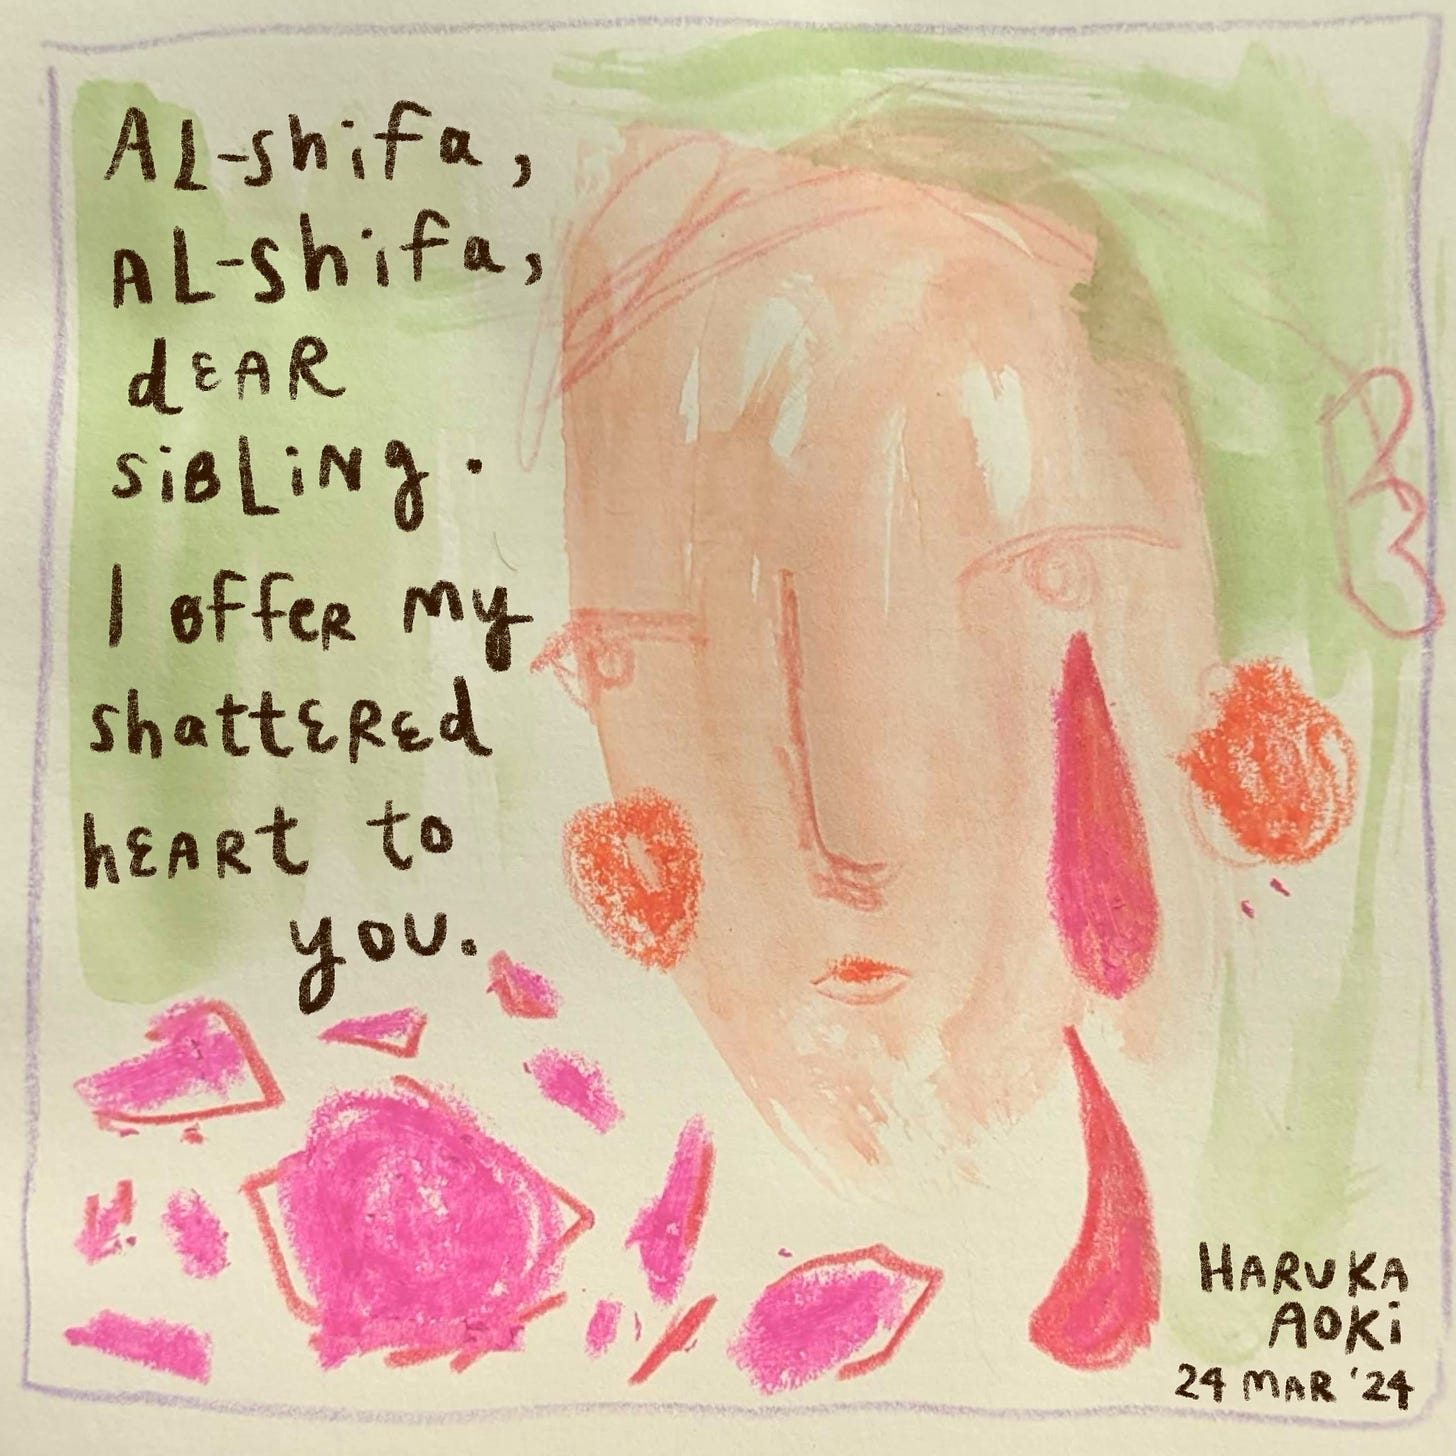 AL-shifa,
AL-shifa,
dEAR
siBLiNg.
I offeR my
shattEREd
hEARt to
you.
HARUKA
AOKi
24 MAR '24